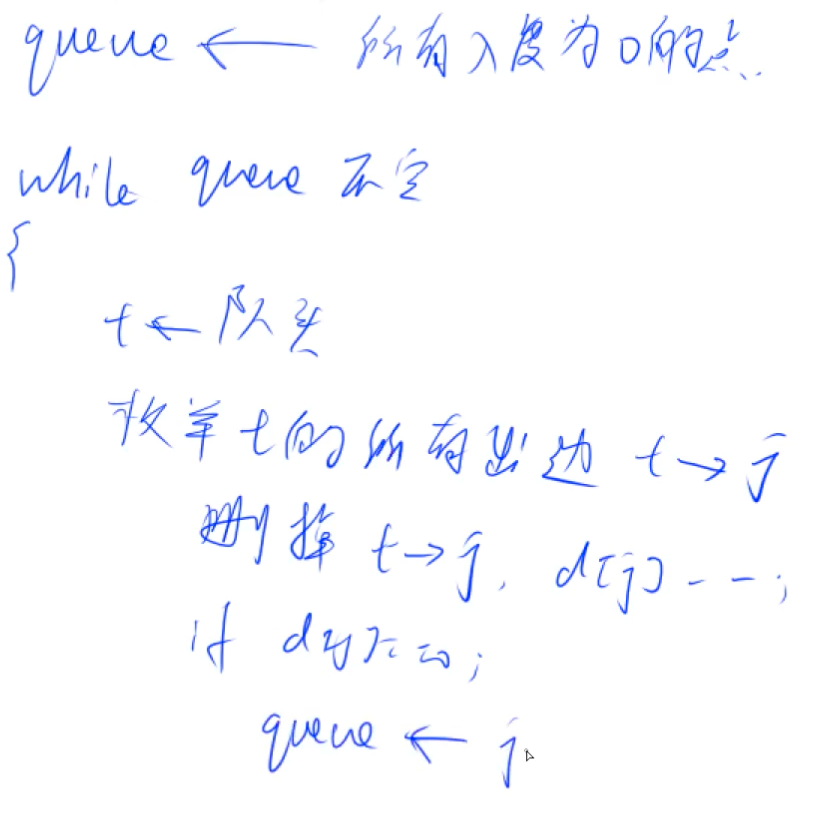 queue ← 所有入度为0的点
while queue 不空
{
t ← 队头
枚举 t 的所有出边 t → j
删掉 t → j, d[j]--;
if d[j]==0;
queue ← j